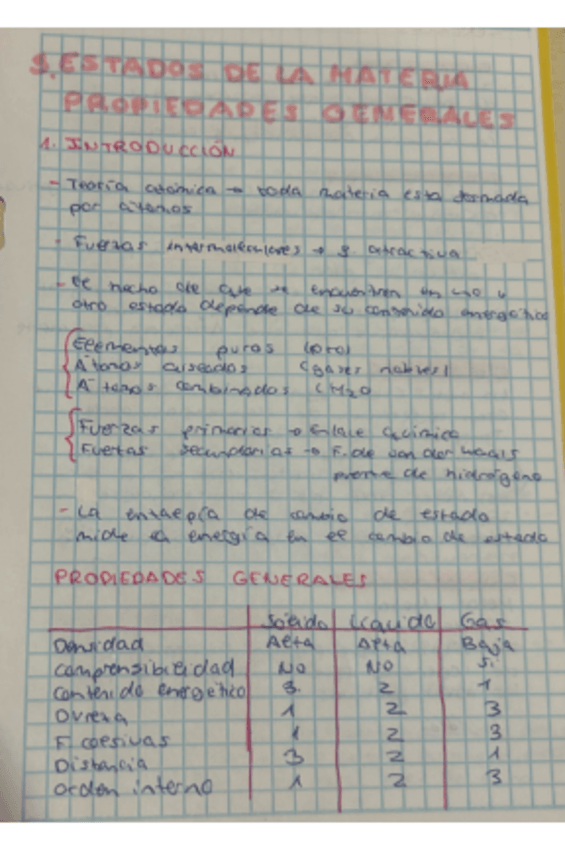 5. ESTADOS DE LA MATERIA
PROPIEDADES GENERALES
1. INTRODUCCIÓN
- Teoría atómica → toda materia esta formada
por átomos
- Fuerzas intermoleculares → f. atractiva
- El hecho de que se encuentren en uno u
otro estado depende de su contenido energético
Elementos puros (oro)
Átomos aiseados (gases nobles)
Átomos combinados (H2O
Fuerzas primarias → Enlace químico
Fuerzas secundarias → F. de van der waals
puente de hidrógeno
- La entalpía de cambio de estado
mide la energía en el cambio de estado
PROPIEDADES GENERALES
Sólido Líquido Gas
Densidad Alta Alta Baja
comprensibilidad NO NO Si
contenido energético 3 2 1
Dureza 1 2 3
F. coesivas 1 2 3
Distancia 3 2 1
orden interno 1 2 3